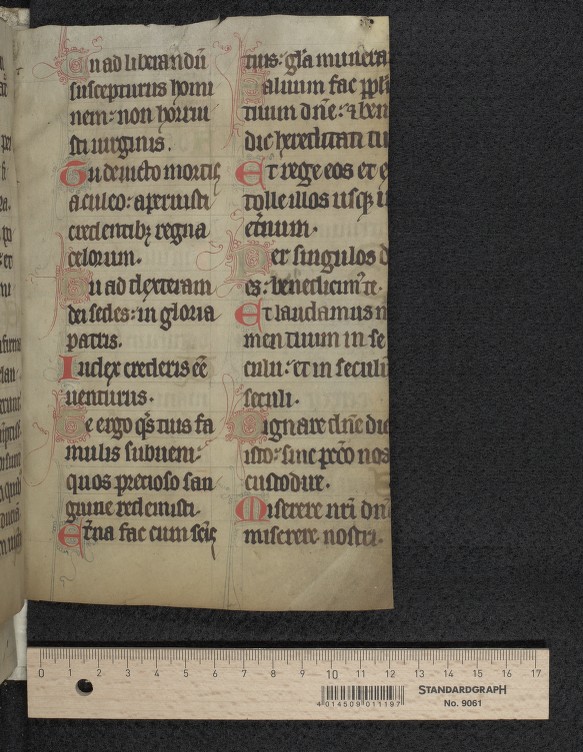 Tu ad liberandū
suscepturus homi
nem: non horrui
sti uirginis.
Tu deuicto mortis
aculeo: aperuisti
credentibȝ regna
celorum.
Tu ad dexteram
dei sedes: in gloria
patris.
Iudex crederis eē
uenturus.
Te ergo qs̄ tuis fa
mulis subueni:
quos precioso san
guine redemisti.
Et̄na fac cum scīs
tuis: gl̄a munera
Saluum fac ppl̄
tuum dn̄e: ⁊ ben
dic hereditati tu
Et rege eos et e
tolle illos usqȝ i
et̄num.
Per singulos d
es: benedicim⁹ te.
Et laudamus n
men tuum in se
culū: et in seculū
seculi.
Dignare dn̄e die
isto: sine pccō nos
custodire.
Miserere nr̄i dn̄
miserere nostri.
0 1 2 3 4 5 6 7 8 9 10 11 12 13 14 15 16 17
4 014509 011197
STANDARDGRAPH
No. 9061